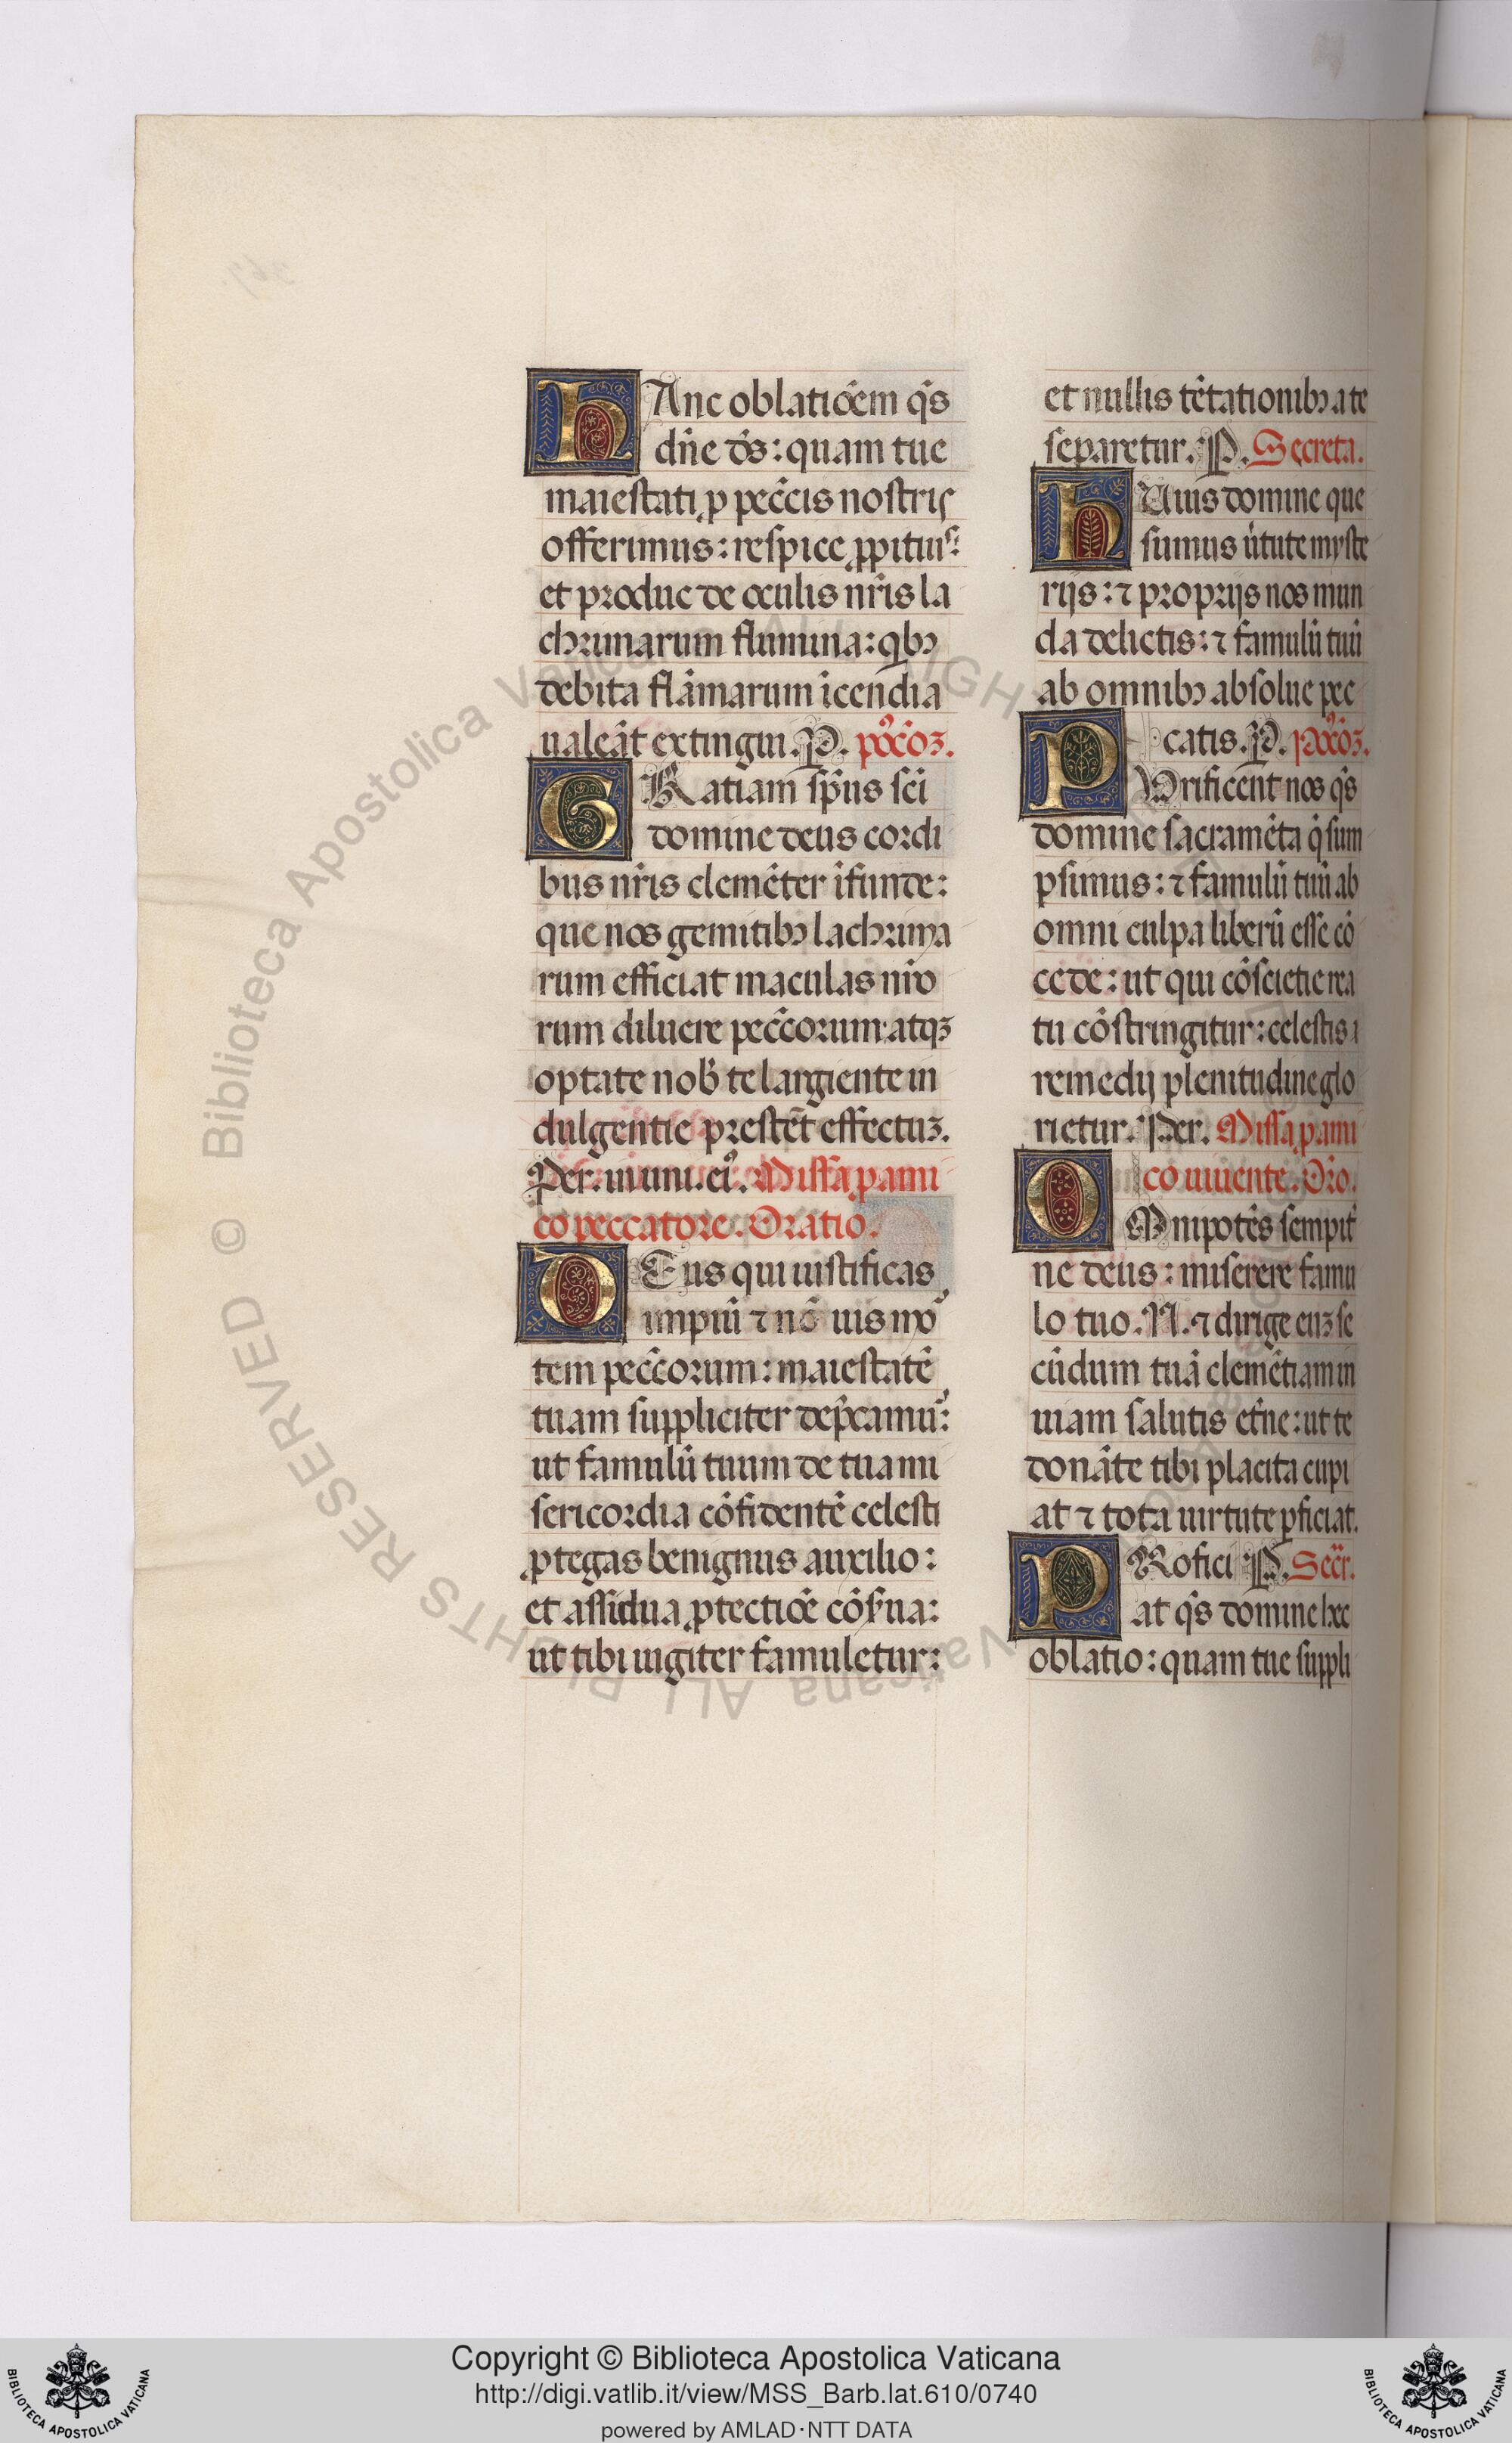 HAnc oblatiōem qs̄
dn̄e ds̄: quam tue
maiestati ꝓ pecc̄is nostris
offerimus: respice ꝓpitius:
et produc de oculis nr̄is la
chrimarum flumina: qbꝫ
debita flāmarum īcendia
ualeāt extingui. P. poꝰcōꝫ.
GRatiam sp̄us sc̄i
domine deus cordi
bus nr̄is clemēter īfunde:
que nos gemitibꝫ lachrima
rum efficiat maculas nr̄o
rum diluere pecc̄orum: atqꝫ
optate nob̄ te largiente in
dulgentie prestēt effectuꝫ.
Per. in uni. eiꝰ. Missa ꝓ ami
co peccatore. Oratio.
DEus qui iustificas
impiū ⁊ nō uis mo
tem pecc̄orum: maiestatē
tuam suppliciter dep̄camuꝰ:
ut famulū tuum de tua mi
sericordia cōfidentē celesti
ꝓtegas benignus auxilio:
et assidua ꝓtectiōe cōs̄ua:
ut tibi iugiter famuletur:
et nullis tētationibꝫ a te
separetur. P. Secreta.
hUius domine que
sumus ūtute myste
rijs: ⁊ proprijs nos mun
da delictis: ⁊ famulū tuū
ab omnibꝫ absolue pec
catis. P. poꝰcōꝫ.
PUrificent nos qs̄
domine sacramēta q̄ sum
psimus: ⁊ famulū tuū ab
omni culpa liberū esse cō
cede: ut qui cōscietie rea
tu cōstringitur: celestis
remedij plenitudine glo
rietur. Per. Missa ꝓ ami
co uiuente. Oro.
OMnipotēs sempit̄
ne deus: miserere famu
lo tuo. N. ⁊ dirige euꝫ se
cūdum tuā clemētiam in
uiam salutis et̄ne: ut te
donāte tibi placita cupi
at ⁊ tota uirtute ꝑficiat.
PRofici P. Secr̄.
at qs̄ domine hec
oblatio: quam tue suppli
Copyright © Biblioteca Apostolica Vaticana
http://digi.vatlib.it/view/MSS_Barb.lat.610/0740
powered by AMLAD·NTT DATA
BIBLIOTECA APOSTOLICA VATICANA
BIBLIOTECA APOSTOLICA VATICANA
© Biblioteca Apostolica Vaticana ALL RIGHTS RESERVED